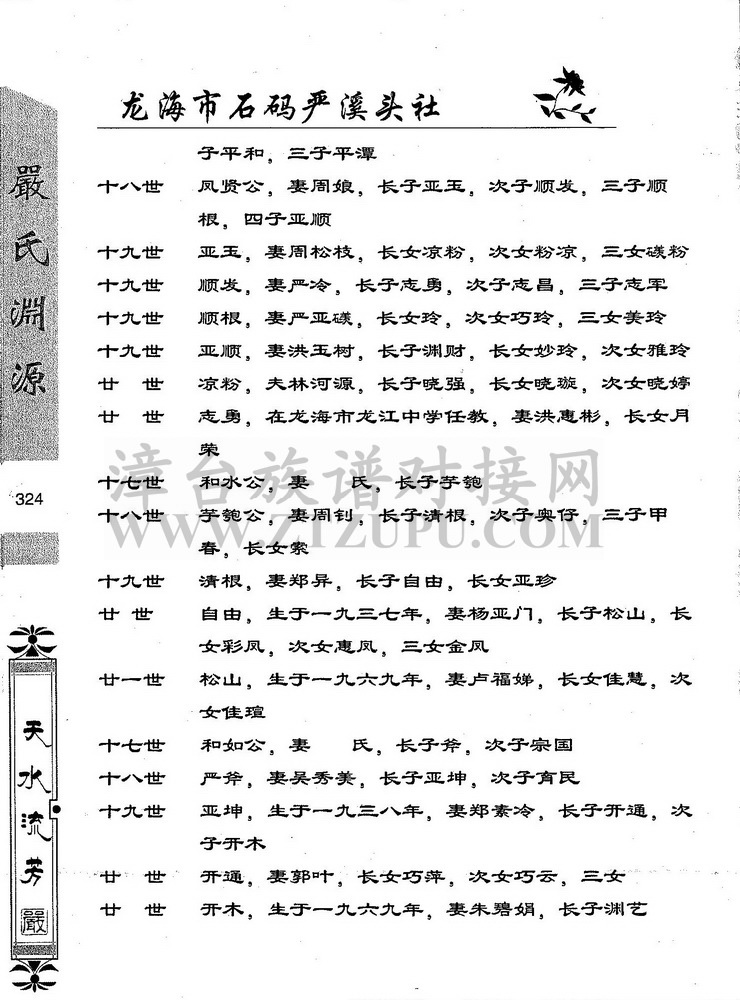 龙海市石码严溪头社
嚴氏淵源
324
天水流芳
嚴
子平和，三子平潭
十八世 凤贤公，妻周娘，长子亚玉，次子顺发，三子顺
根，四子亚顺
十九世 亚玉，妻周松枝，长女凉粉，次女粉凉，三女礒粉
十九世 顺发，妻严冷，长子志勇，次子志昌，三子志军
十九世 顺根，妻严亚礒，长女玲，次女巧玲，三女美玲
十九世 亚顺，妻洪玉树，长子渊财，长女妙玲，次女雅玲
廿 世 凉粉，夫林河源，长子晓强，长女晓璇，次女晓婷
廿 世 志勇，在龙海市龙江中学任教，妻洪惠彬，长女月
荣
十七世 和水公，妻 氏，长子芋匏
十八世 芋匏公，妻周钊，长子清根，次子奥仔，三子甲
春，长女索
十九世 清根，妻郑异，长子自由，长女亚珍
廿 世 自由，生于一九三七年，妻杨亚门，长子松山，长
女彩凤，次女惠凤，三女金凤
廿一世 松山，生于一九六九年，妻卢福娣，长女佳慧，次
女佳瑄
十七世 和如公，妻 氏，长子斧，次子宗国
十八世 严斧，妻吴秀美，长子亚坤，次子育民
十九世 亚坤，生于一九三八年，妻郑素冷，长子开通，次
子开木
廿 世 开通，妻郭叶，长女巧萍，次女巧云，三女
廿 世 开木，生于一九六九年，妻朱碧娟，长子渊艺
漳台族谱对接网
WWW.ZTZUPU.COM